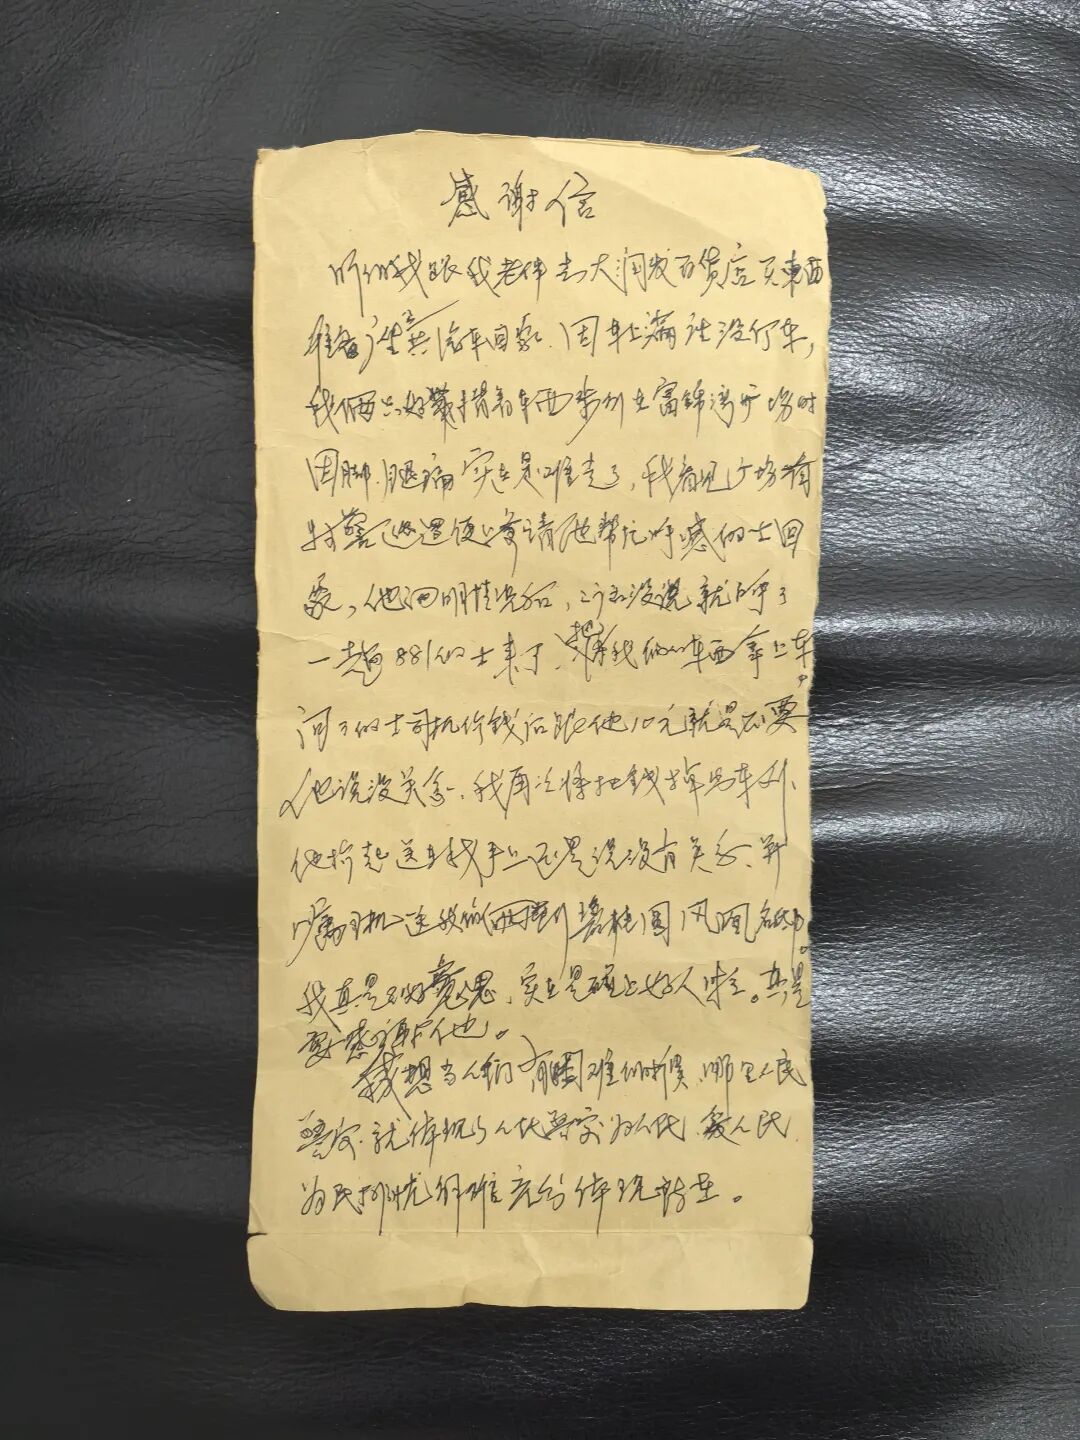 感谢信
昨你我跟我老伴去大润发百货店买東西
准备广坐公共汽车回家、因车上满没行车,
我们俩只好戴揹着东西步行在富锦湾广场时
因脚、腿痛实在是难走了,我看见广场有
警巡逻便上前请他帮忙呼喊的士回
家,他问明情况后,二话没说就的呼了
一趟881的士来了、把我们的东西拿上车,
问了的士司机价钱后跟他10元就是不要
他说没关系、我再次将把钱掉出车外、
他拾起送在我手上还是说没有关系、并
嘱司机送我俩到碧桂园凤凰名城。
我真是不好意思,实在是碰上好人心。真是
要感谢他。
我想当人们有困难的时候,哪里有人民
警察、就体现了人民警察为人民、爱人民、
为民排忧解难充分体现